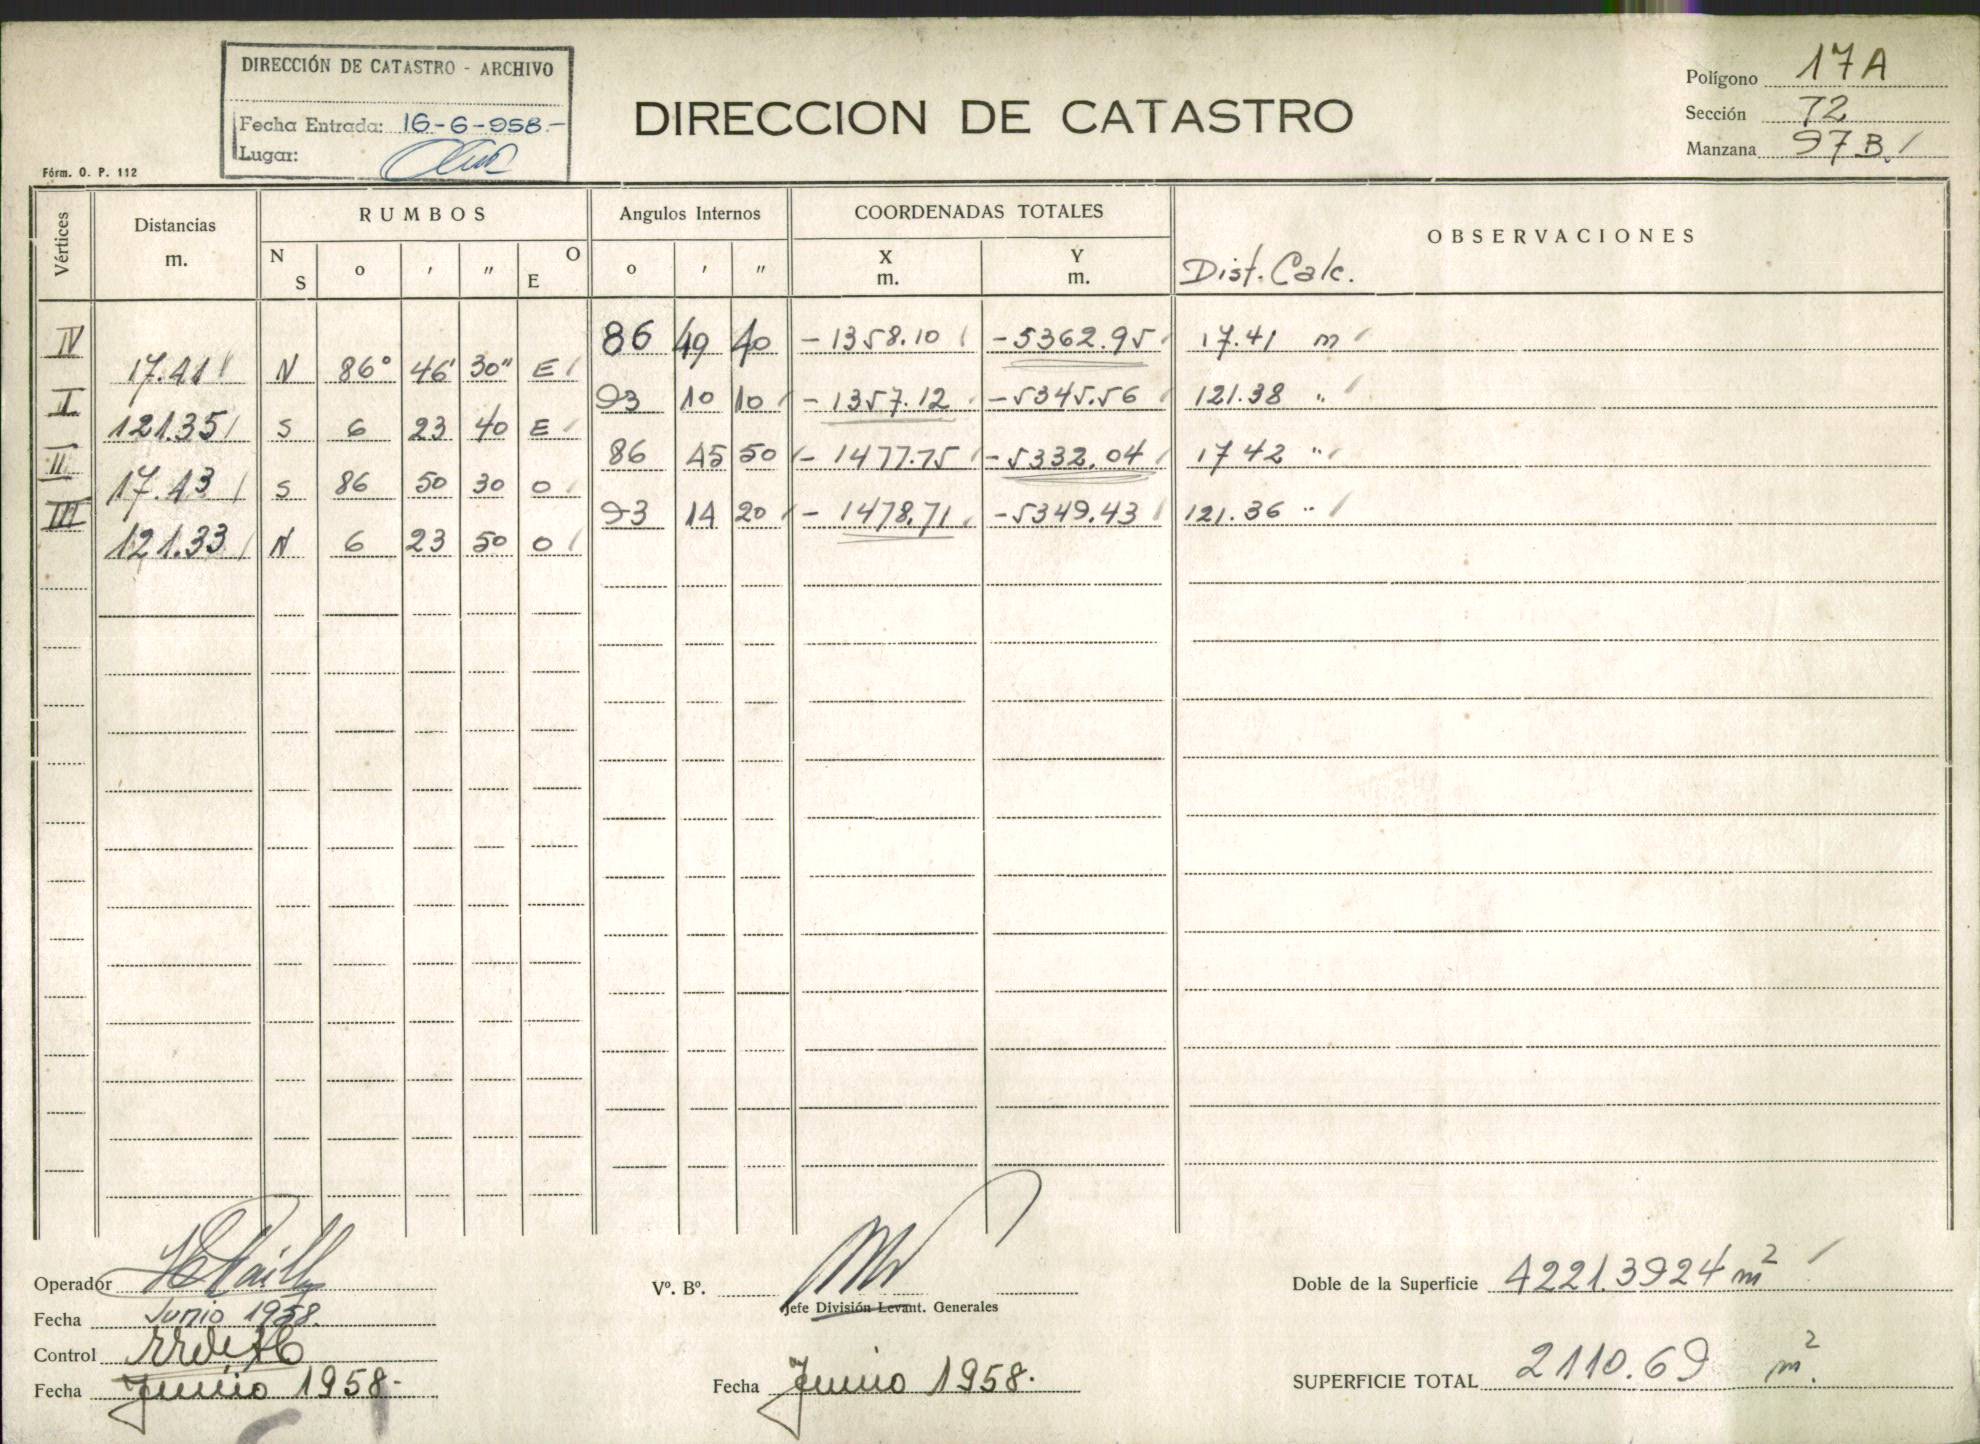 DIRECCIÓN DE CATASTRO - ARCHIVO
Fecha Entrada: 16-6-958.-
Lugar:
Fórm. O. P. 112
DIRECCION DE CATASTRO
Polígono 17A
Sección 72
Manzana 97B
Vértices
Distancias
m.
RUMBOS
N S
o
'
"
O E
Angulos Internos
o ' "
COORDENADAS TOTALES
X
m.
Y
m.
OBSERVACIONES
Dist. Calc.
IV 86 49 40 -1358.10 -5362.95 17.41 m
17.41 N 86° 46' 30" E
I 93 10 10 -1357.12 -5345.56 121.38 "
121.35 S 6 23 40 E
II 86 45 50 -1477.75 -5332.04 17 42 "
17.43 S 86 50 30 O
III 93 14 20 -1478.71 -5349.43 121.36 "
121.33 N 6 23 50 O
Operador
Fecha Junio 1958.
Control
Fecha Junio 1958.-
Vº. Bº.
Jefe División Levant. Generales
Fecha Junio 1958.
Doble de la Superficie 4221.3924 m²
SUPERFICIE TOTAL 2110.69 m².